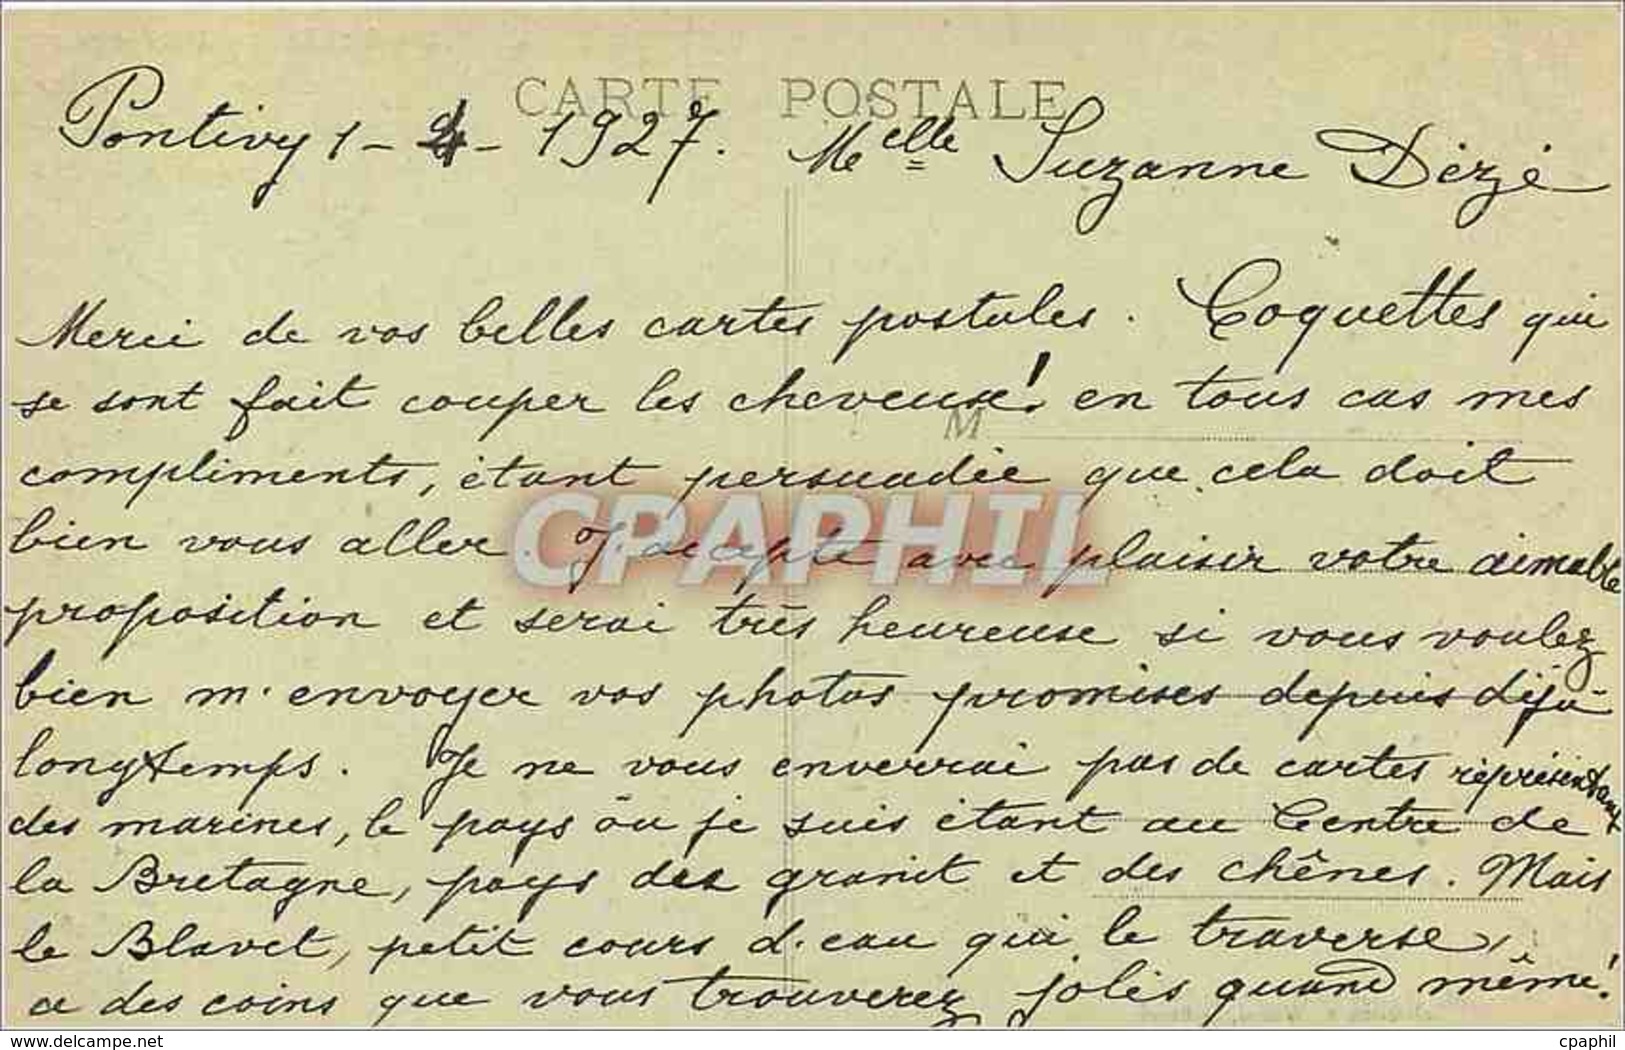 CARTE POSTALE
Pontivy 1-4-1927. Melle Suzanne Dézé
Merci de vos belles cartes postales. Coquettes qui
se sont fait couper les cheveux! en tous cas mes
M
compliments, étant persuadée que cela doit
bien vous aller. J'accepte avec plaisir votre aimable
proposition et serai très heureuse si vous voulez
bien m'envoyer vos photos promises depuis déjà
longtemps. Je ne vous enverrai pas de cartes représentant
des marines, le pays où je suis étant au Centre de
la Bretagne, pays des granit et des chênes. Mais
le Blavet, petit cours d'eau qui le traverse,
a des coins que vous trouverez jolis quand même!
CPAPHIL
delcampe.net
cpaphil